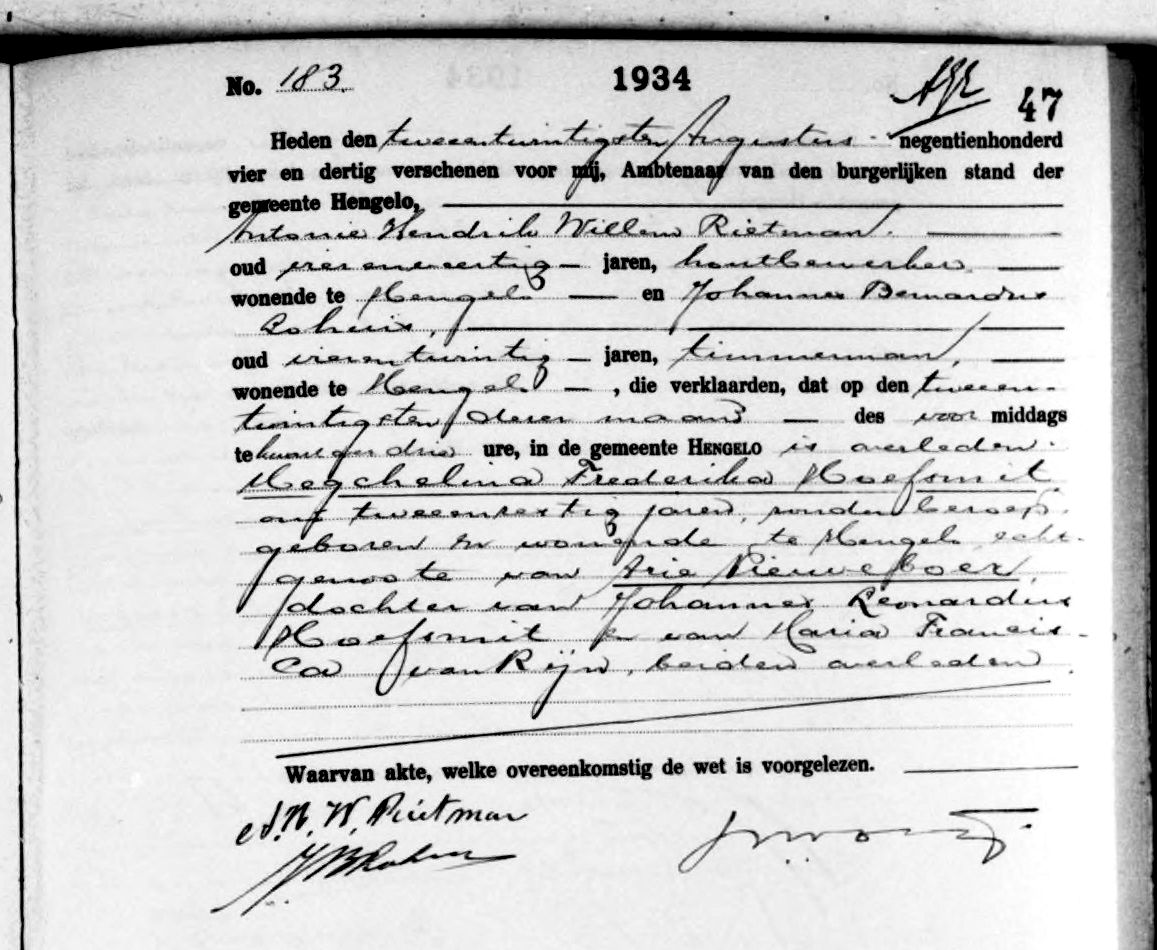 No. 183. 1934
47
Heden den tweeentwintigsten Augustus negentienhonderd
vier en dertig verschenen voor mij, Ambtenaar van den burgerlijken stand der
gemeente Hengelo,
Antonie Hendrik Willem Rietman.
oud vierenveertig jaren, houtbewerker
wonende te Hengelo en Johannes Bernardus
oud vierentwintig jaren, timmerman,
wonende te Hengelo, die verklaarden, dat op den tweeen-
twintigsten dezer maand des voor middags
te ure, in de gemeente HENGELO is overleden
Megchelina Frederika Hoefsmit
oud tweeenzestig jaren, zonder beroep,
geboren en wonende te Hengelo, echt-
genoote van Arie Nieuweboer,
dochter van Johannes Leonardus
Hoefsmit en van Maria Francis-
ca van Rijn, beiden overleden.
Waarvan akte, welke overeenkomstig de wet is voorgelezen.
H. W. Rietman